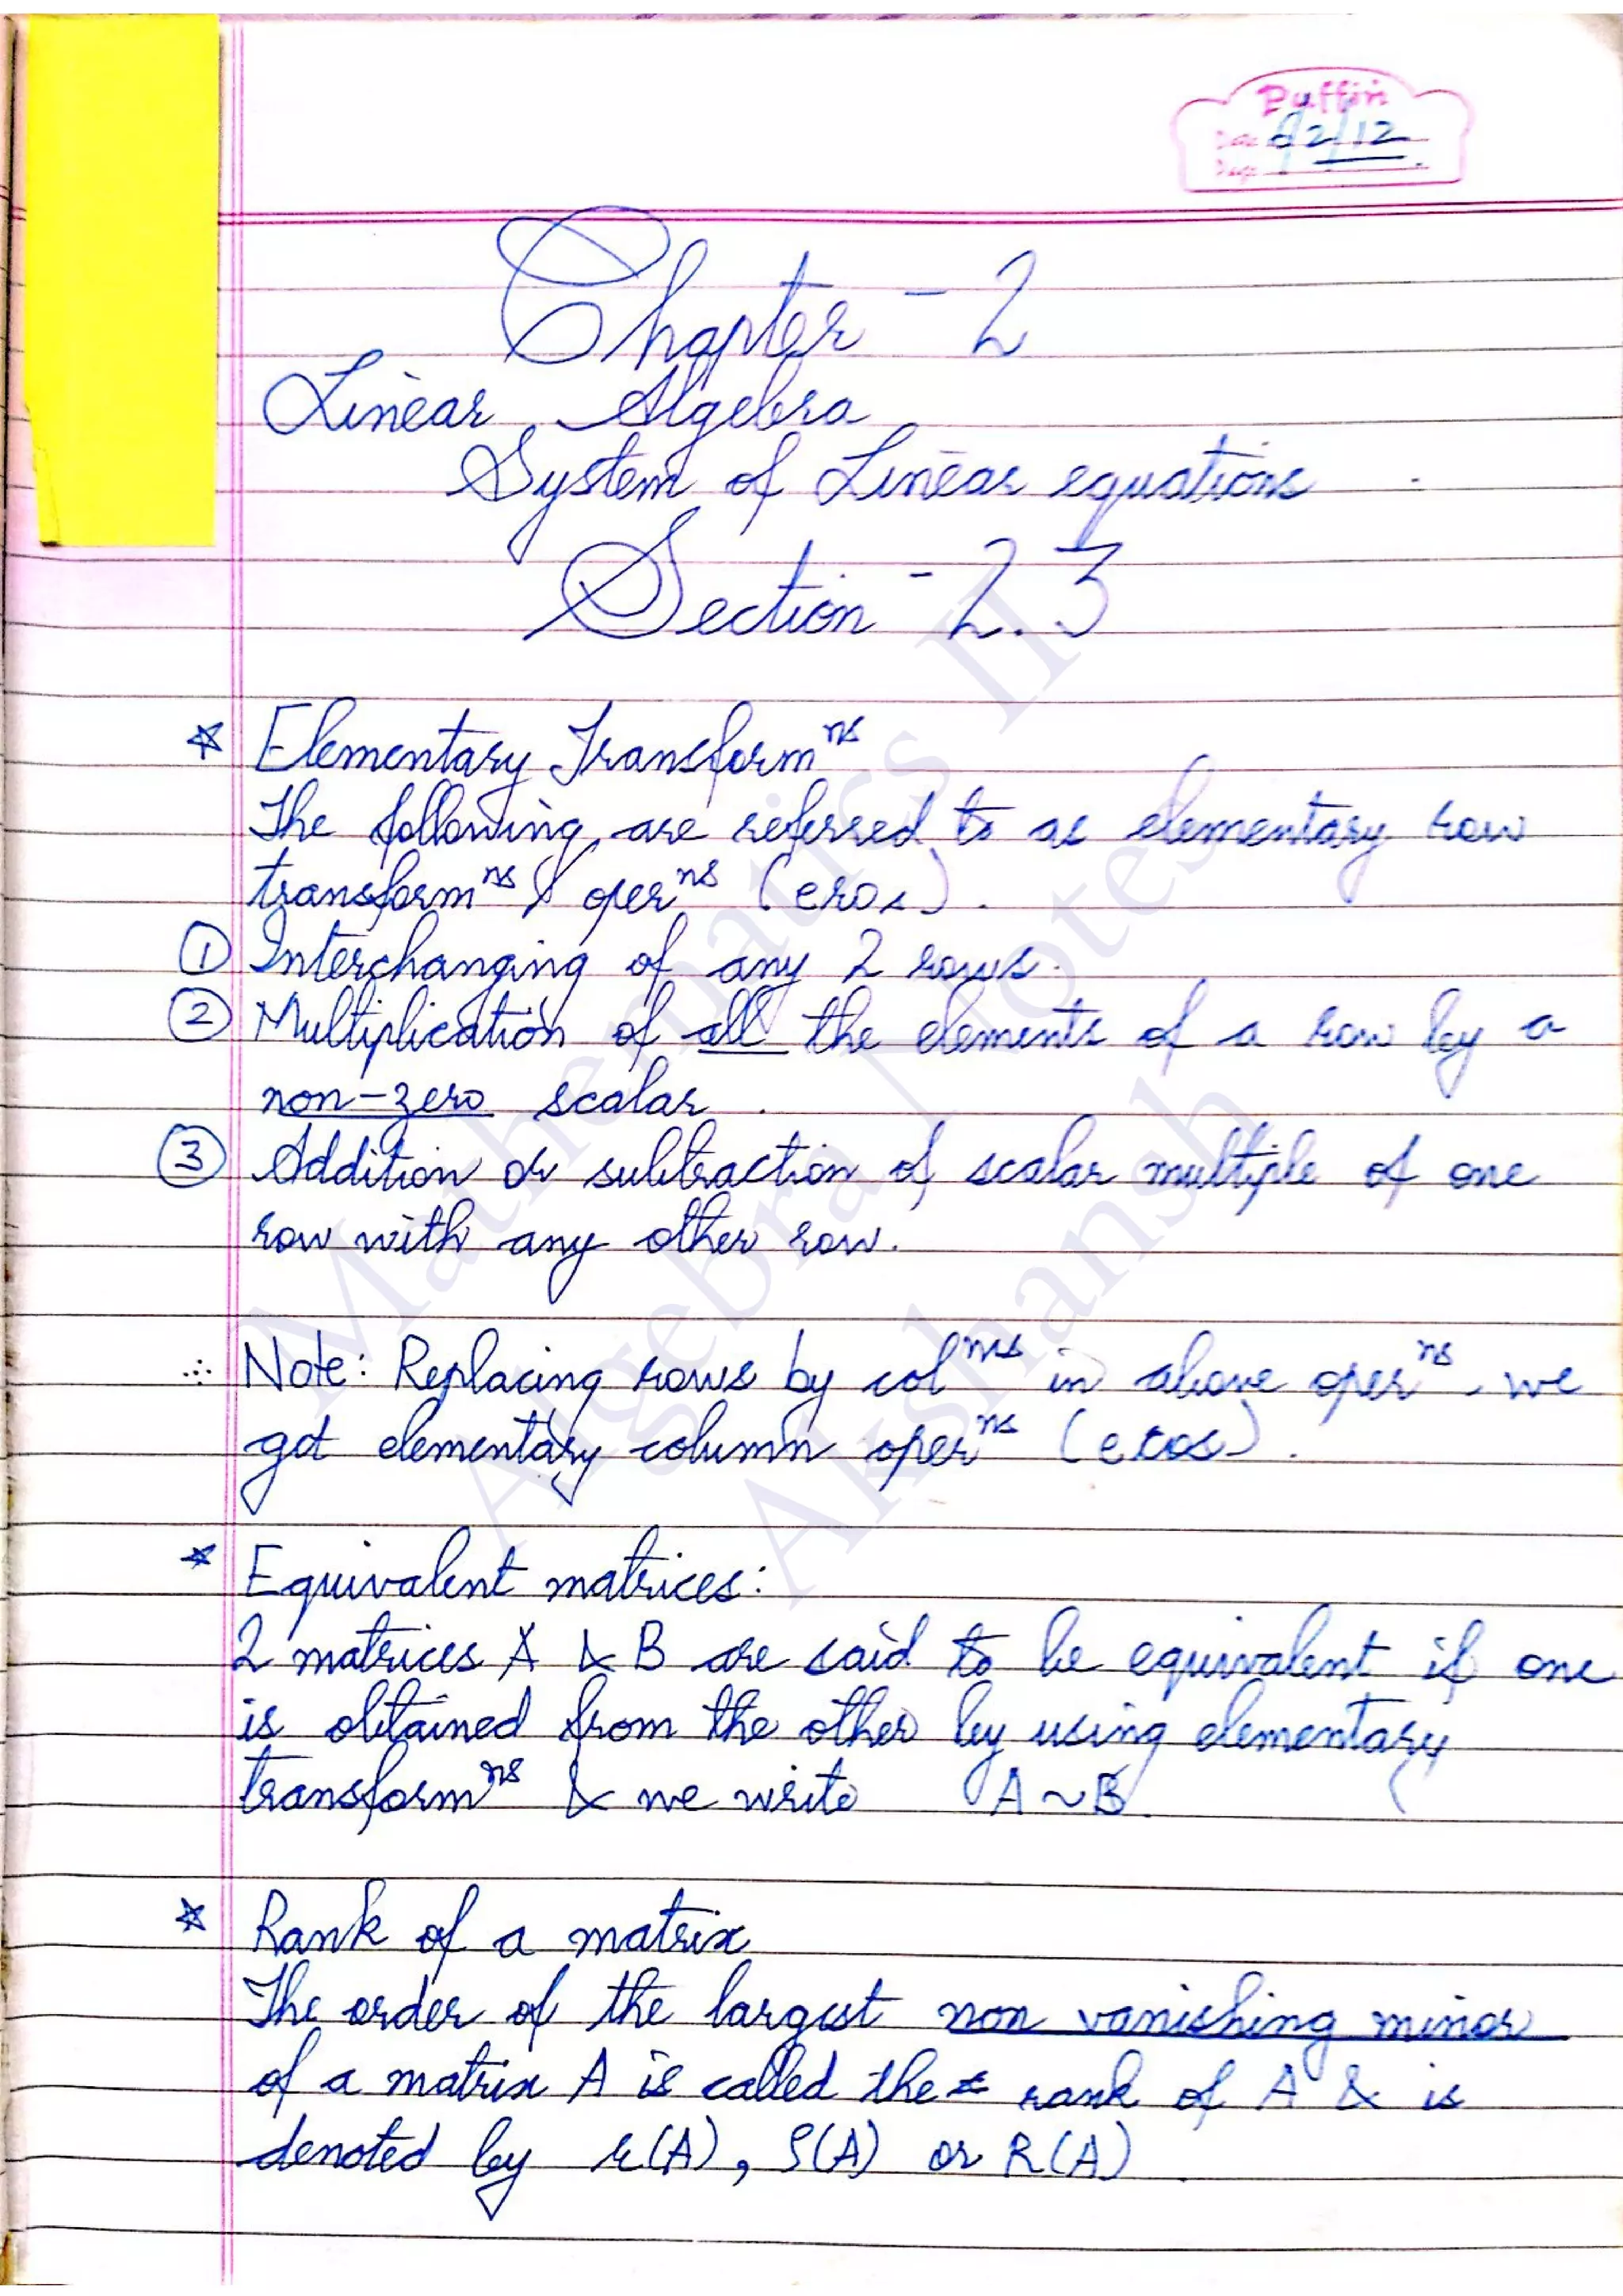 Puffin
Date
Page
Chapter - 2
Linear Algebra
System of Linear equations
Section - 2.3
* Elementary Transform^ns
The following are referred to as elementary row
transform^ns / oper^ns (eros).
① Interchanging of any 2 rows.
② Multiplication of all the elements of a row by a
non-zero scalar.
③ Addition or subtraction of scalar multiple of one
row with any other row.
∴ Note: Replacing rows by col^mns in above oper^ns, we
get elementary column oper^ns (ecos).
* Equivalent matrices:
2 matrices A & B are said to be equivalent if one
is obtained from the other by using elementary
transform^ns & we write A ~ B.
* Rank of a matrix
The order of the largest non vanishing minor
of a matrix A is called the rank of A & is
denoted by r(A), ρ(A) or R(A).
Mathematics II
Algebra Notes
Akshansh